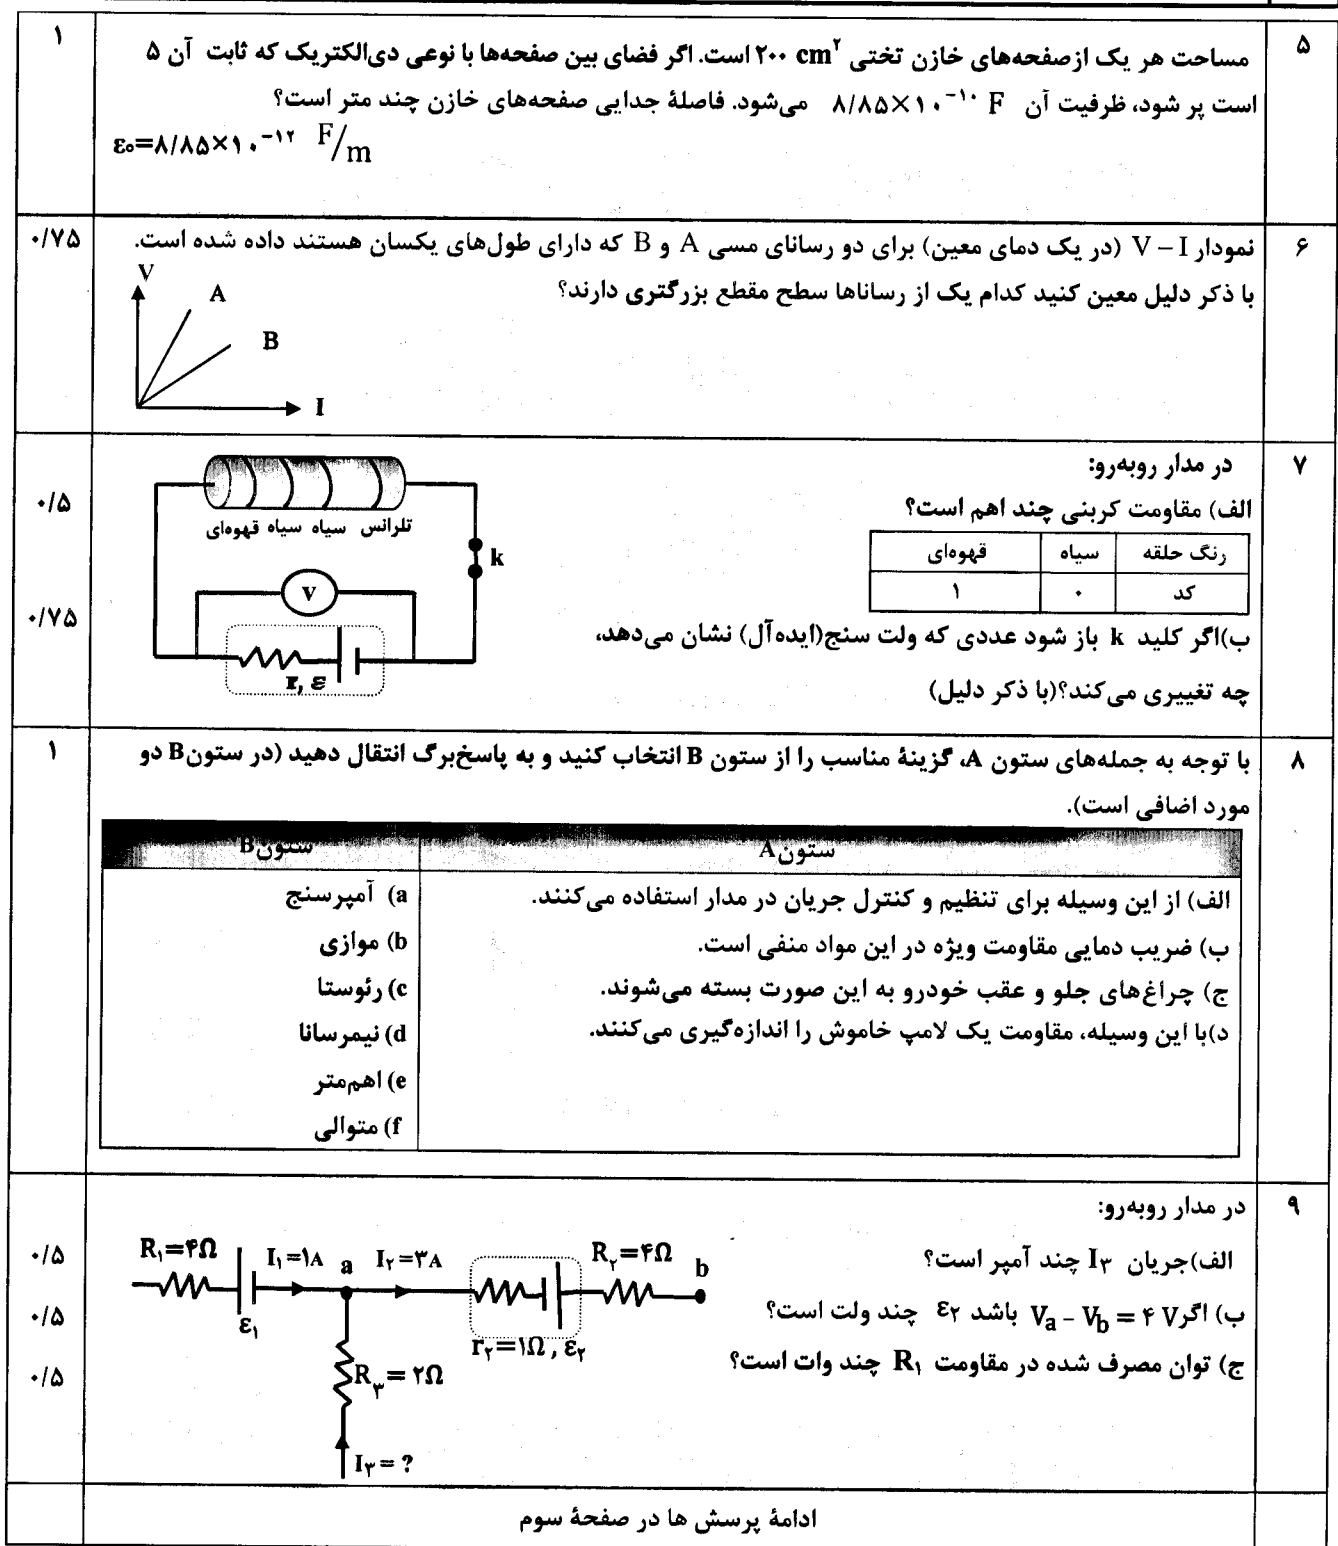 ۵
مساحت هر یک ازصفحه‌های خازن تختی ۲۰۰ cm^۲ است. اگر فضای بین صفحه‌ها با نوعی دی‌الکتریک که ثابت آن ۵
۱
است پر شود، ظرفیت آن ۸/۸۵×۱۰^-۱۰ F می‌شود. فاصلهٔ جدایی صفحه‌های خازن چند متر است؟
ε₀=۸/۸۵×۱۰^-۱۲ F/m
۶
نمودار V – I (در یک دمای معین) برای دو رسانای مسی A و B که دارای طول‌های یکسان هستند داده شده است.
۰/۷۵
با ذکر دلیل معین کنید کدام یک از رساناها سطح مقطع بزرگتری دارند؟
V
A
B
I
۷
در مدار روبه‌رو:
الف) مقاومت کربنی چند اهم است؟
۰/۵
رنگ حلقه سیاه قهوه‌ای
کد ۰ ۱
ب)اگر کلید k باز شود عددی که ولت سنج(ایده‌آل) نشان می‌دهد،
۰/۷۵
چه تغییری می‌کند؟(با ذکر دلیل)
تلرانس سیاه سیاه قهوه‌ای
k
v
r, ε
۸
با توجه به جمله‌های ستون A، گزینهٔ مناسب را از ستون B انتخاب کنید و به پاسخ‌برگ انتقال دهید (در ستونB دو
۱
مورد اضافی است).
ستونA
ستونB
الف) از این وسیله برای تنظیم و کنترل جریان در مدار استفاده می‌کنند.
a) آمپرسنج
ب) ضریب دمایی مقاومت ویژه در این مواد منفی است.
b) موازی
ج) چراغ‌های جلو و عقب خودرو به این صورت بسته می‌شوند.
c) رئوستا
د)با این وسیله، مقاومت یک لامپ خاموش را اندازه‌گیری می‌کنند.
d) نیمرسانا
e) اهم‌متر
f) متوالی
۹
در مدار روبه‌رو:
الف)جریان I₃ چند آمپر است؟
۰/۵
ب) اگر Va – Vb = ۴ V باشد ε۲ چند ولت است؟
۰/۵
ج) توان مصرف شده در مقاومت R₁ چند وات است؟
۰/۵
R₁=۴Ω
I₁=۱A
a
I۲=۳A
R۲=۴Ω
b
ε₁
r۲=۱Ω , ε۲
R۳=۲Ω
I۳= ?
ادامهٔ پرسش ها در صفحهٔ سوم